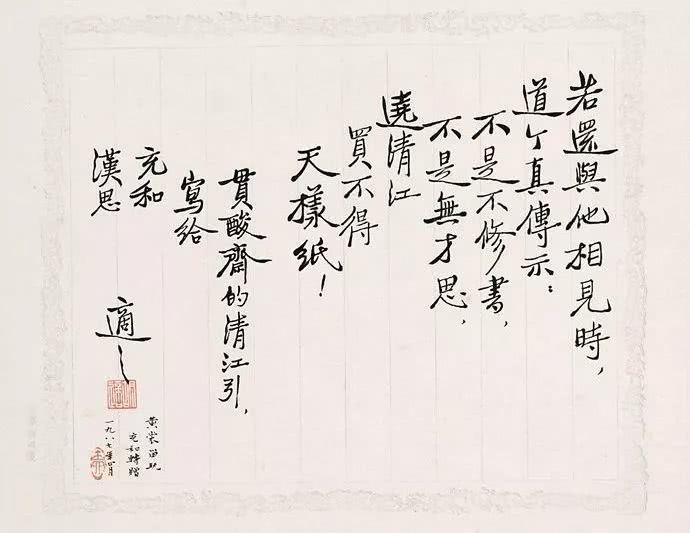 若還與他相見時，
道个真傳示：
不是不修書，
不是無才思，
遶清江
買不得
天樣紙！
貫酸齋的清江引，
寫給
充和
漢思
適之
黃裳留玩
充和轉贈
一九八七年四月